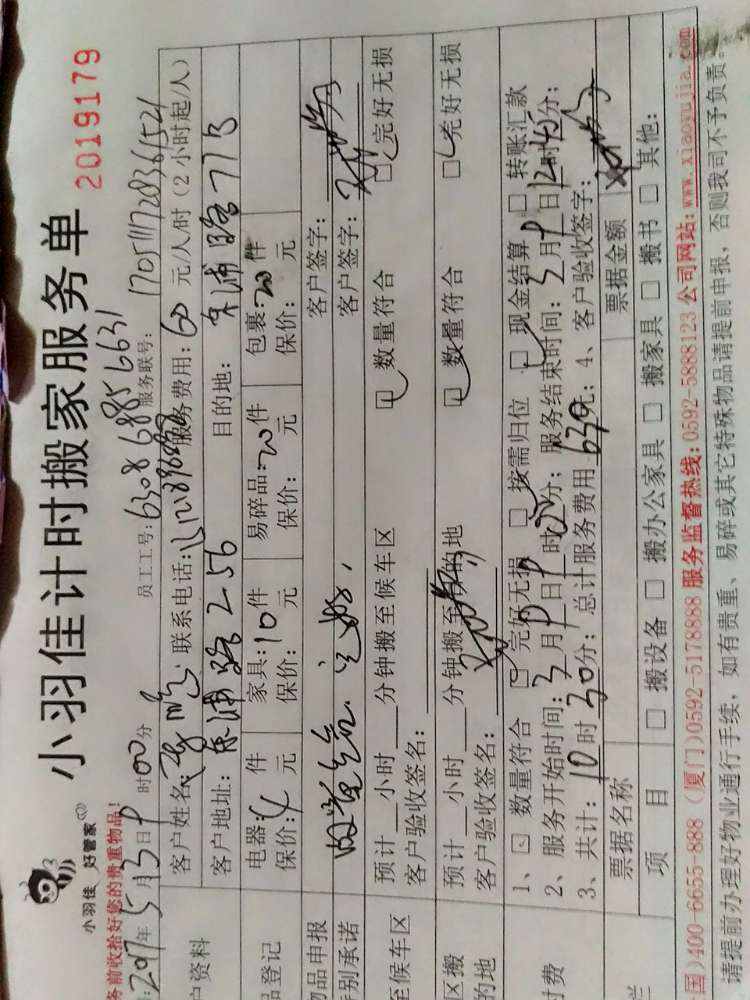 小羽佳计时搬家服务单
2019179
小羽佳 好管家
务前收拾好您的贵重物品!
2017年5月3日 时00分 员工工号:6308 6885 6631 服务联号:
户资料 客户姓名: 联系电话: 服务费用:60元/人/时(2小时起/人)
客户地址: 浦路256 目的地: 浦路77号
品登记 电器: 件 家具:10件 易碎品:20件 包裹:20件
保价: 元 保价: 元 保价: 元 保价: 元
物品申报 客户签字:
特别承诺 客户签字:
至候车区 预计 小时 分钟搬至候车区 数量符合 完好无损
客户验收签名:
区搬 预计 小时 分钟搬至 的地 数量符合 完好无损
的地 客户验收签名:
付费 1、 数量符合 完好无损 按需归位 现金结算 转账汇款
2、服务开始时间:3月 日 时 分;服务结束时间:3月 日12时45分;
3、共计:10时30分;总计服务费用 630元;4、客户验收签字:
票据名称 票据金额
项 目 搬设备 搬办公家具 搬家具 搬书 其他:
国)400-6655-888 (厦门)0592-5178888 服务监督热线:0592-5888123 公司网站:www.xiaoyujia.com
请提前办理好物业通行手续,如有贵重、易碎或其它特殊物品请提前申报,否则我司不予负责。